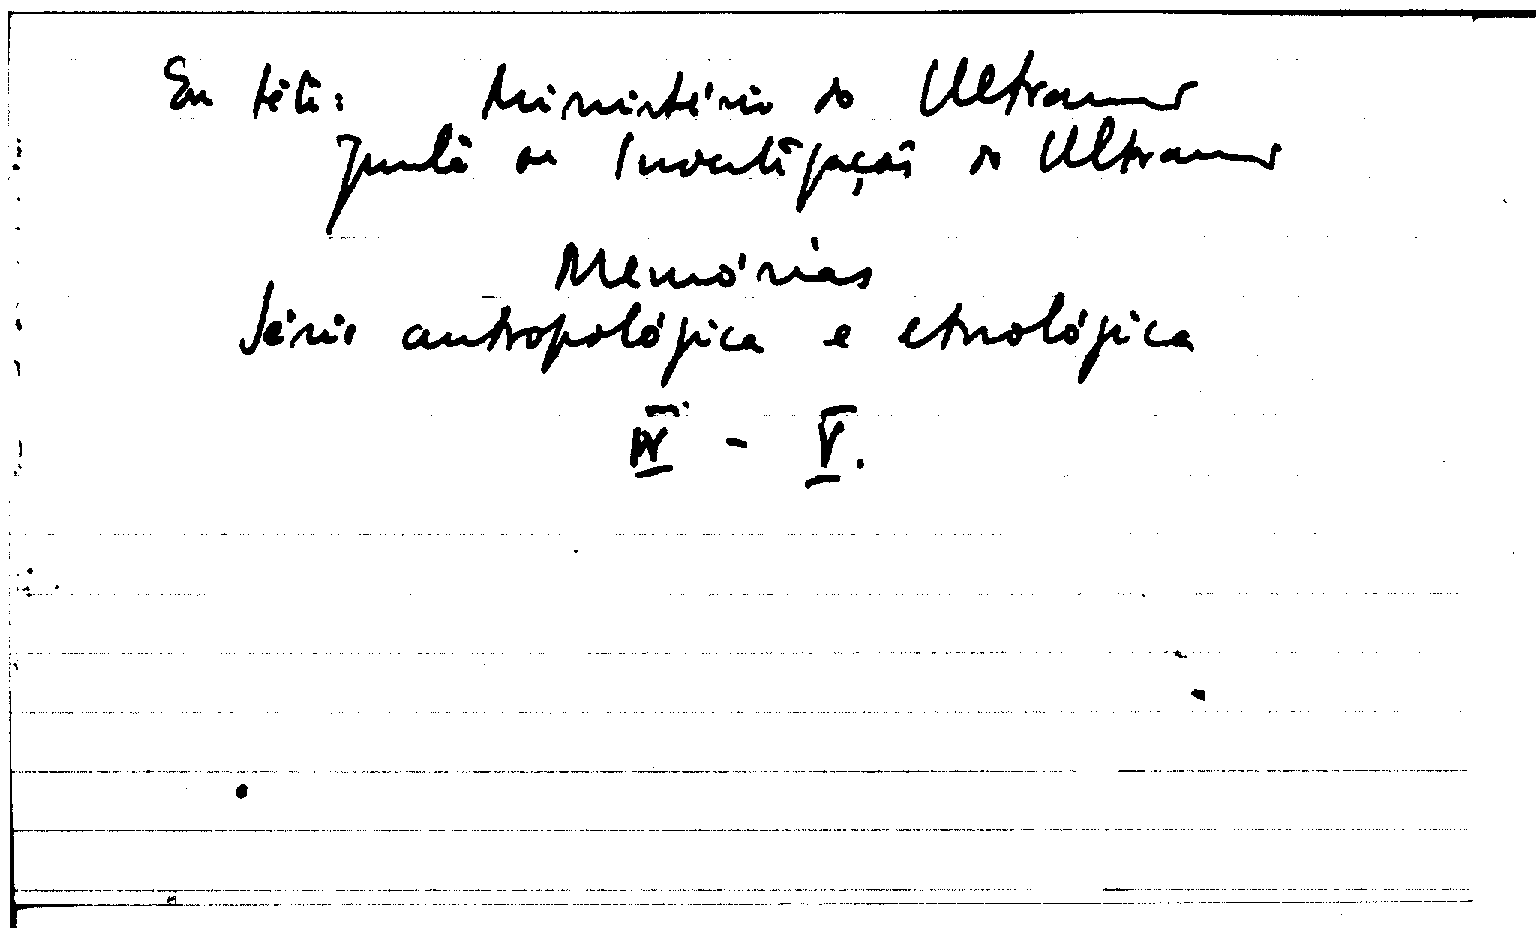 En tête: Ministério do Ultramar
Junta de Investigações do Ultramar
Memórias
Série antropológica e etnológica
IV - V.